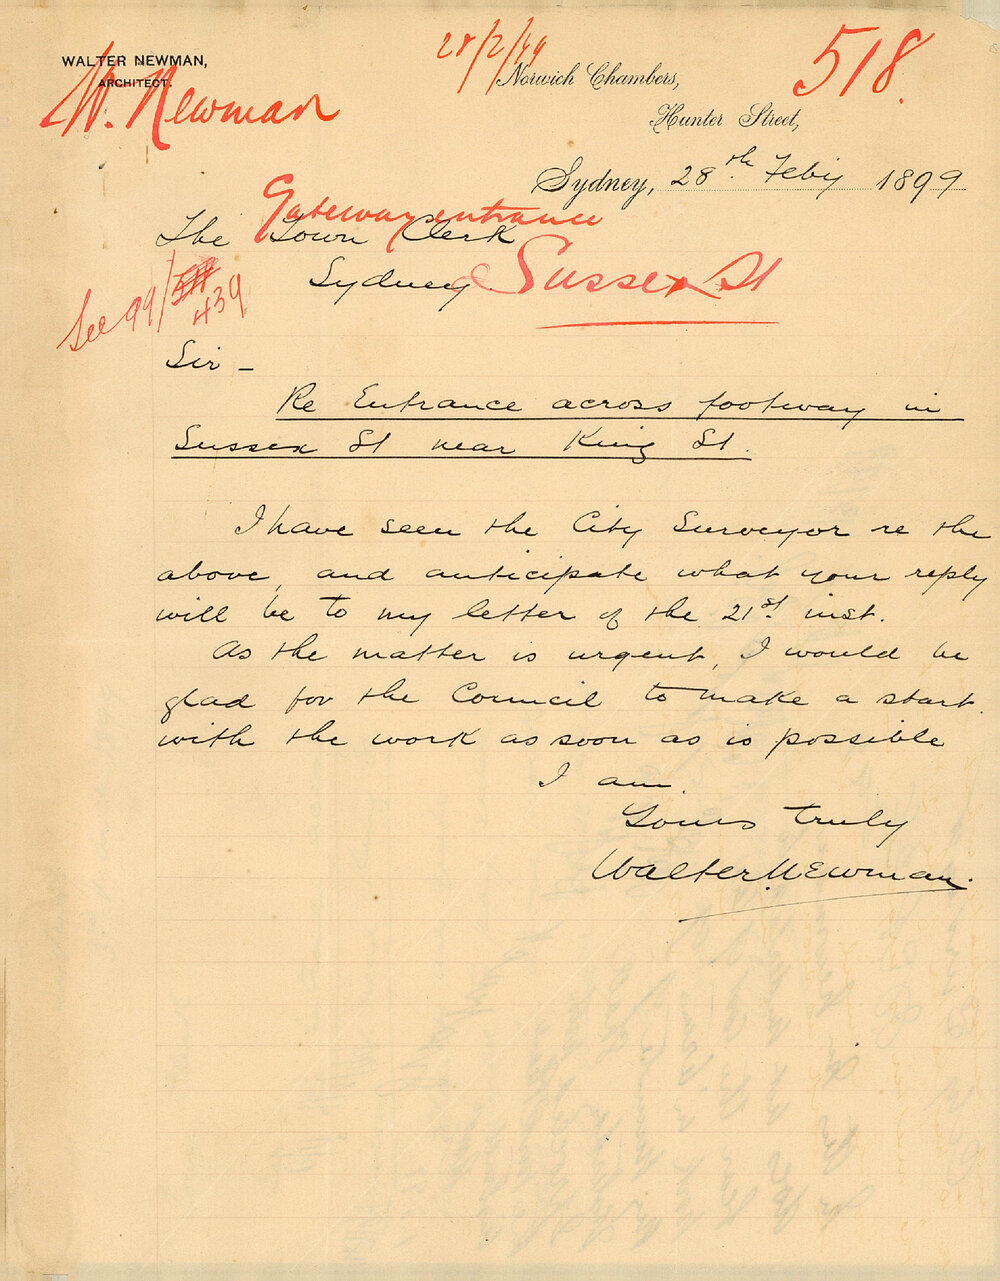 WALTER NEWMAN,
ARCHITECT.
W. Newman
28/2/99
Norwich Chambers,
Hunter Street,
518.
Sydney, 28th Feby 1899
Gateway entrance
The Town Clerk
Sydney.
Sussex St
See 99/
439
Sir -
Re Entrance across footway in
Sussex St near King St.
I have seen the City Surveyor re the
above, and anticipate what your reply
will be to my letter of the 21st inst.
As the matter is urgent, I would be
glad for the Council to make a start
with the work as soon as is possible
I am.
Yours truly
Walter Newman.